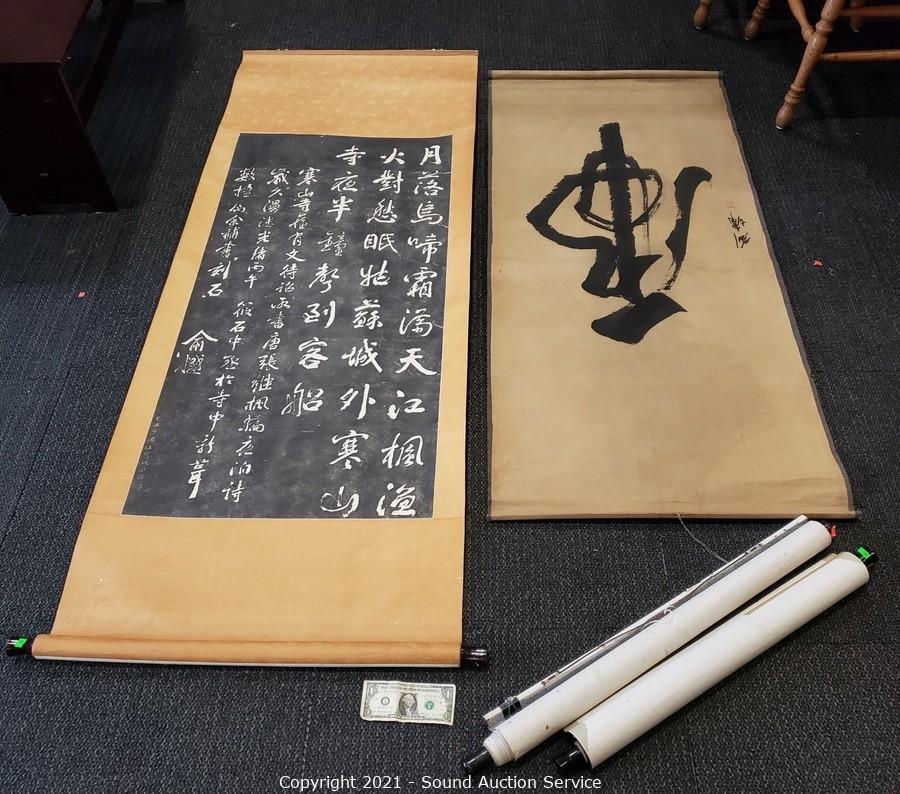 月落烏啼霜滿天江楓漁
火對愁眠姑蘇城外寒山
寺夜半鐘聲到客船
寒山寺舊有文待詔所書唐張繼楓橋夜泊詩
歲久漫漶光緒丙午筱石中丞於寺中新葺
數楹屬余補書刻石
俞樾
Copyright 2021 - Sound Auction Service